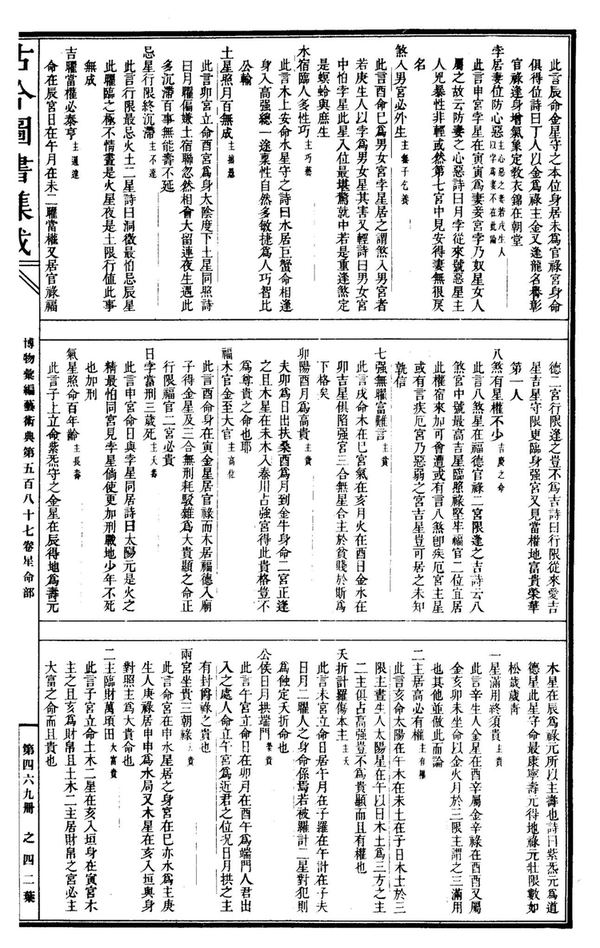 此言辰命金星守之本位身居未為官祿宮身命
俱得位詩曰丁人以金為祿主金又逢龍名譽彰
官祿逢身增氣象定教衣錦在朝堂
孛居妻位防心惡主心惡之妻若戊生人以孛為妻不在此論
此言申宮孛星在寅寅為妻妾宮孛乃奴星女人
屬之故云防妻之心惡詩曰月孛從來號惡星主
人兇暴性非輕或然第七宮中見安得妻無很戾
名
煞入男宮必外生主養子乞養
此言酉命巳為男女宮孛星居之謂煞入男宮者
若庚生人以孛為男女星其害又輕詩曰男女宮
中怕孛星此星入位最堪驚就中若是重逢煞定
是螟蛉與庶生
水宿臨人多性巧主巧藝
此言木上安命水星守之詩曰水居巨蟹命相逢
身入高強總一途稟性自然多敏捷為人巧智比
公輸
土星照月百無成主拙愚
此言卯宮立命酉宮為身大陰度下土星同照詩
曰月曜偏嫌土宿聯忽然相會大留連夜生遇此
多沉滯百事無能壽不延
忌星行限終沉滯主不達
此言行限最忌火土二星詩曰洞微最怕忌辰星
此曜臨之極不情晝是火星夜是土限行值此事
無成
吉曜當權必泰亨主通達
命在辰宮日在午月在未二曜當權又居官祿福
德二宮行限逢之豈不為吉詩曰行限從來愛吉
星吉星守限更臨身強宮又見當權地富貴榮華
第一人
八煞有星權不少吉慶之命
此言八煞星在福德官祿二宮限逢之吉詩云八
煞宮中號最高吉星臨照祿堅牢福官二位宜居
此權宿來加可會遭或有言八煞卽疾厄宮主星
或有言疾厄宮乃惡弱之宮吉星豈可居之未知
孰信
七強無曜富難言主貧
此言戌命木在巳宮氣在亥月火在酉日金水在
卯吉星俱陷強宮三合無星合主於貧賤於斯為
下格矣
卯陽酉月為高貴主貴
夫卯為日出扶桑酉為月到金牛身命二宮正逢
之且木星在未木入秦川占強宮得此貴格豈不
為尊貴之命也耶
福木官金至大官主高位
此言酉命身在寅金星居官祿而木居福德入廟
子得金星及三合無刑耗駁雜為大貴顯之命正
行限福官二宮必貴
日孛當刑三歲死主夭壽
此言申宮命日與孛星同居詩曰太陽元是火之
精最怕同宮見孛星倘使更加刑戰地少年不死
也加刑
氣星照命百年齡主長壽
此言子上立命紫炁守之金星在辰得地為壽元
木星在辰為祿元所以主壽也詩曰紫炁元為道
德星此星守命最康寧壽元得地祿元壯限數如
松歲歲靑
一星滿用終須貴主貴
此言辛生人金星在酉辛屬金辛祿在酉酉又屬
金亥卯未坐命以金火月於三限主謂之三滿用
也其他並做此而論
二主居高必有權主有權
此言亥命太陽在午木在未土在子日木土於三
限主晝生人太陽星在午以日木土為三方之主
二主俱占高強豈不為貴顯而且有權也
夭折計羅傷本主主夭
此言未宮立命日居午月在子羅在午計在子夫
日月二曜人之身命係焉若被羅計二星對犯則
為蝕定夭折命也
公侯日月拱端門榮貴
此言午宮立命日在卯月在酉午為端門人君出
入之處人命立午宮為近君之位況日月拱之主
有封爵祿之貴也
兩宮坐貴三朝祿主貴
此言命宮在申水星居之身宮在巳亦水為主庚
生人庚祿居申申為水局又木星在亥入垣與身
對照主為大貴命也
二主臨財萬頃田大富貴
此言子宮立命土木二星在亥入垣身在寅宮木
主之且亥為財帛且土木二主居財帛之宮必主
大富之命而且貴也
古今圖書集成
博物彙編藝術典第五百八十七卷星命部
第四六九冊 之四二葉